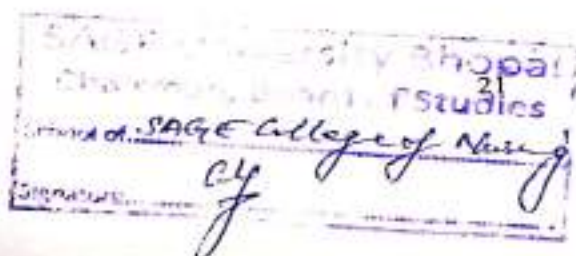 SAGE University Bhopal
21
Chairman, Board of Studies
School of SAGE College of Nursing
Signature